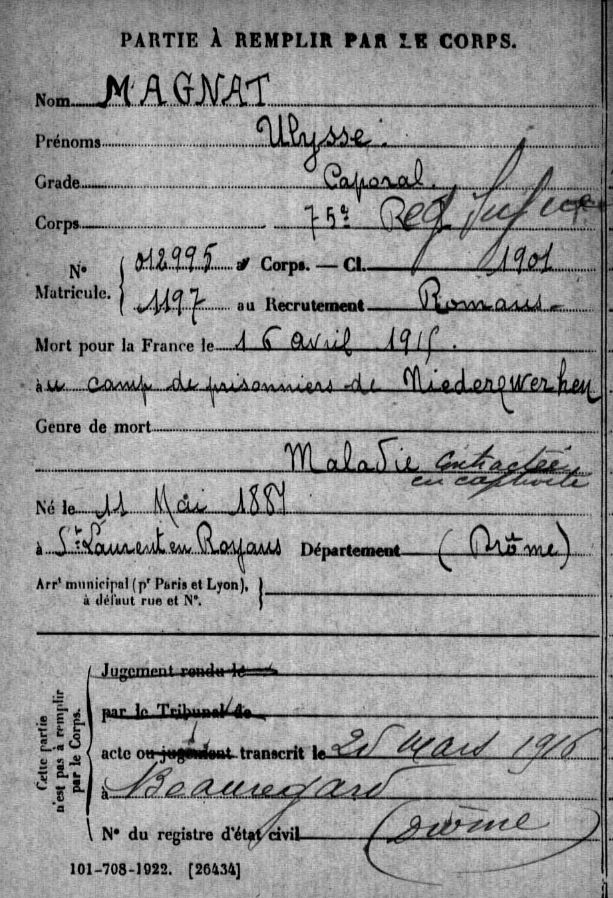 PARTIE À REMPLIR PAR LE CORPS.
Nom MAGNAT
Prénoms Ulysse
Grade Caporal
Corps 75e Reg Inf
N° Matricule. 012995 au Corps. — Cl. 1901
1197 au Recrutement Romans
Mort pour la France le 16 avril 1915
au camp de prisonniers de Niederzwerhen
Genre de mort
Maladie contractée
en captivité
Né le 11 Mai 1881
à St Laurent en Royans Département (Drôme)
Arrt municipal (pr Paris et Lyon),
à défaut rue et N°.
Cette partie n'est pas à remplir par le Corps.
Jugement rendu le
par le Tribunal de
acte ou jugement transcrit le 25 mars 1916
à Beauregard
N° du registre d'état civil (Drôme)
101-708-1922. [26434]